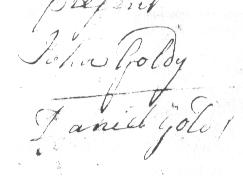 present
John Goldy
Daniel Gold